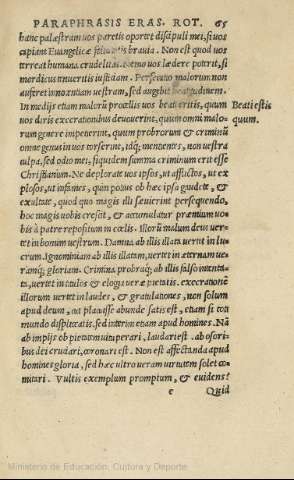 PARAPHRASIS ERAS. ROT. 65
hanc palæstram uos paretis oportet discipuli mei, si uos
capiant Euangelicæ felicitatis brauia. Non est quod uos
terreat humana crudelitas. Nemo uos lædere poterit, si
mordicus tenueritis iustitiam. Persecutio malorum non
auferet innocentiam uestram, sed augebit beatitudinem.
In medijs etiam malorũ procellis uos beati eritis, quum
uos diris execrationibus deuouerint, quum omni malo-
rum genere impetierint, quum probrorum & criminũ
omne genus in uos torserint, idq; mentientes, non uestra
culpa, sed odio mei, siquidem summa criminum erit esse
Christianum. Ne deplorate uos ipsos, ut afflictos, ut ex
plosos, ut infames, quin potius ob hæc ipsa gaudete, &
exultate, quod quo magis illi sæuierint persequendo,
hoc magis uobis crescit, & accumulatur præmium uo-
bis à patre repositum in cœlis. Illorũ malum deus uer-
tet in bonum uestrum. Damna ab illis illata uertet in lu-
crum. Ignominiam ab illis illatam, uertet in æternam ue-
ramq; gloriam. Crimina probraq; ab illis falso intenta-
ta, uertet in titulos & elogia ueræ pietatis. execrationẽ
illorum uertet in laudes, & gratulationes, non solum
apud deum, cui placuisse abunde satis est, etiam si toti
mundo displiceatis. sed interim etiam apud homines. Nã
ab impijs ob pietatem uituperari, laudari est. ab osori-
bus dei crudari, coronari est. Non est affectanda apud
homines gloria, sed hæc ultro ueram uirtutem solet co-
mitari. Vultis exemplum promptum, & euidens?
e Quid
Beati estis
quum.
Ministerio de Educación, Cultura y Deporte